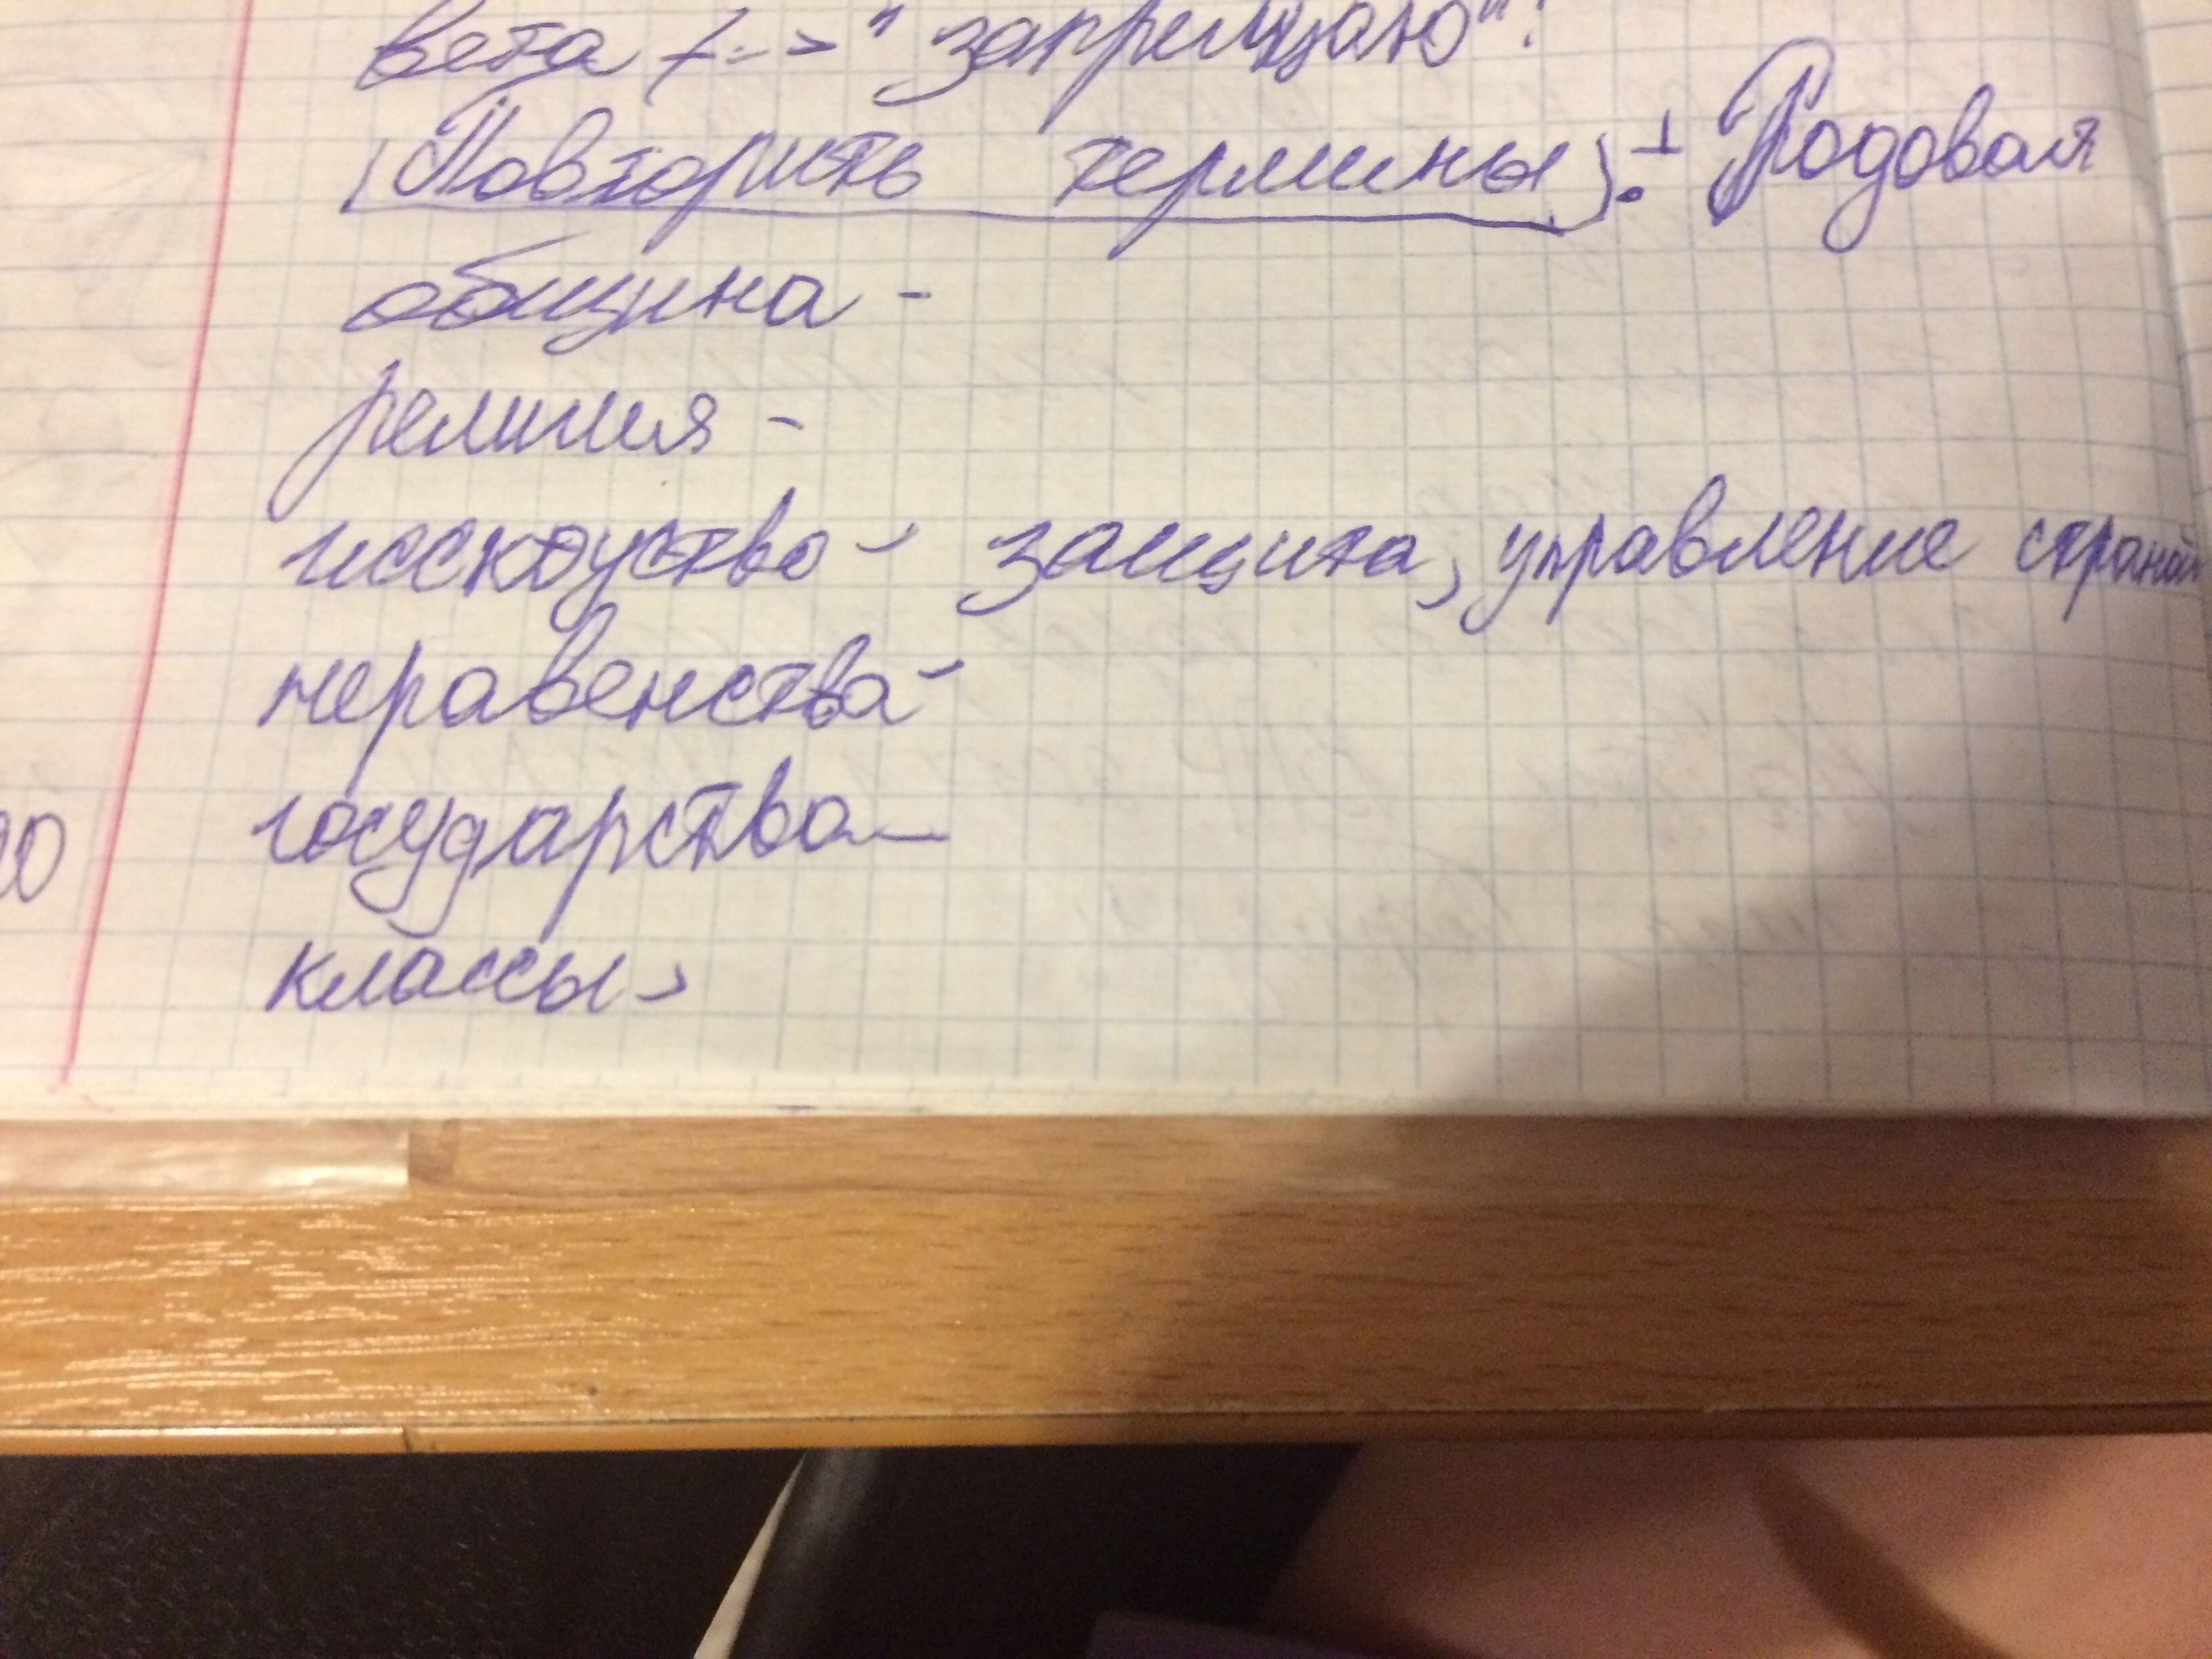 вета -> "запрещаю"!
(Повторить термины): 1 Родовая
община -
религия -
исскоуство - защита, управление страной
неравенства -
государство —
классы -